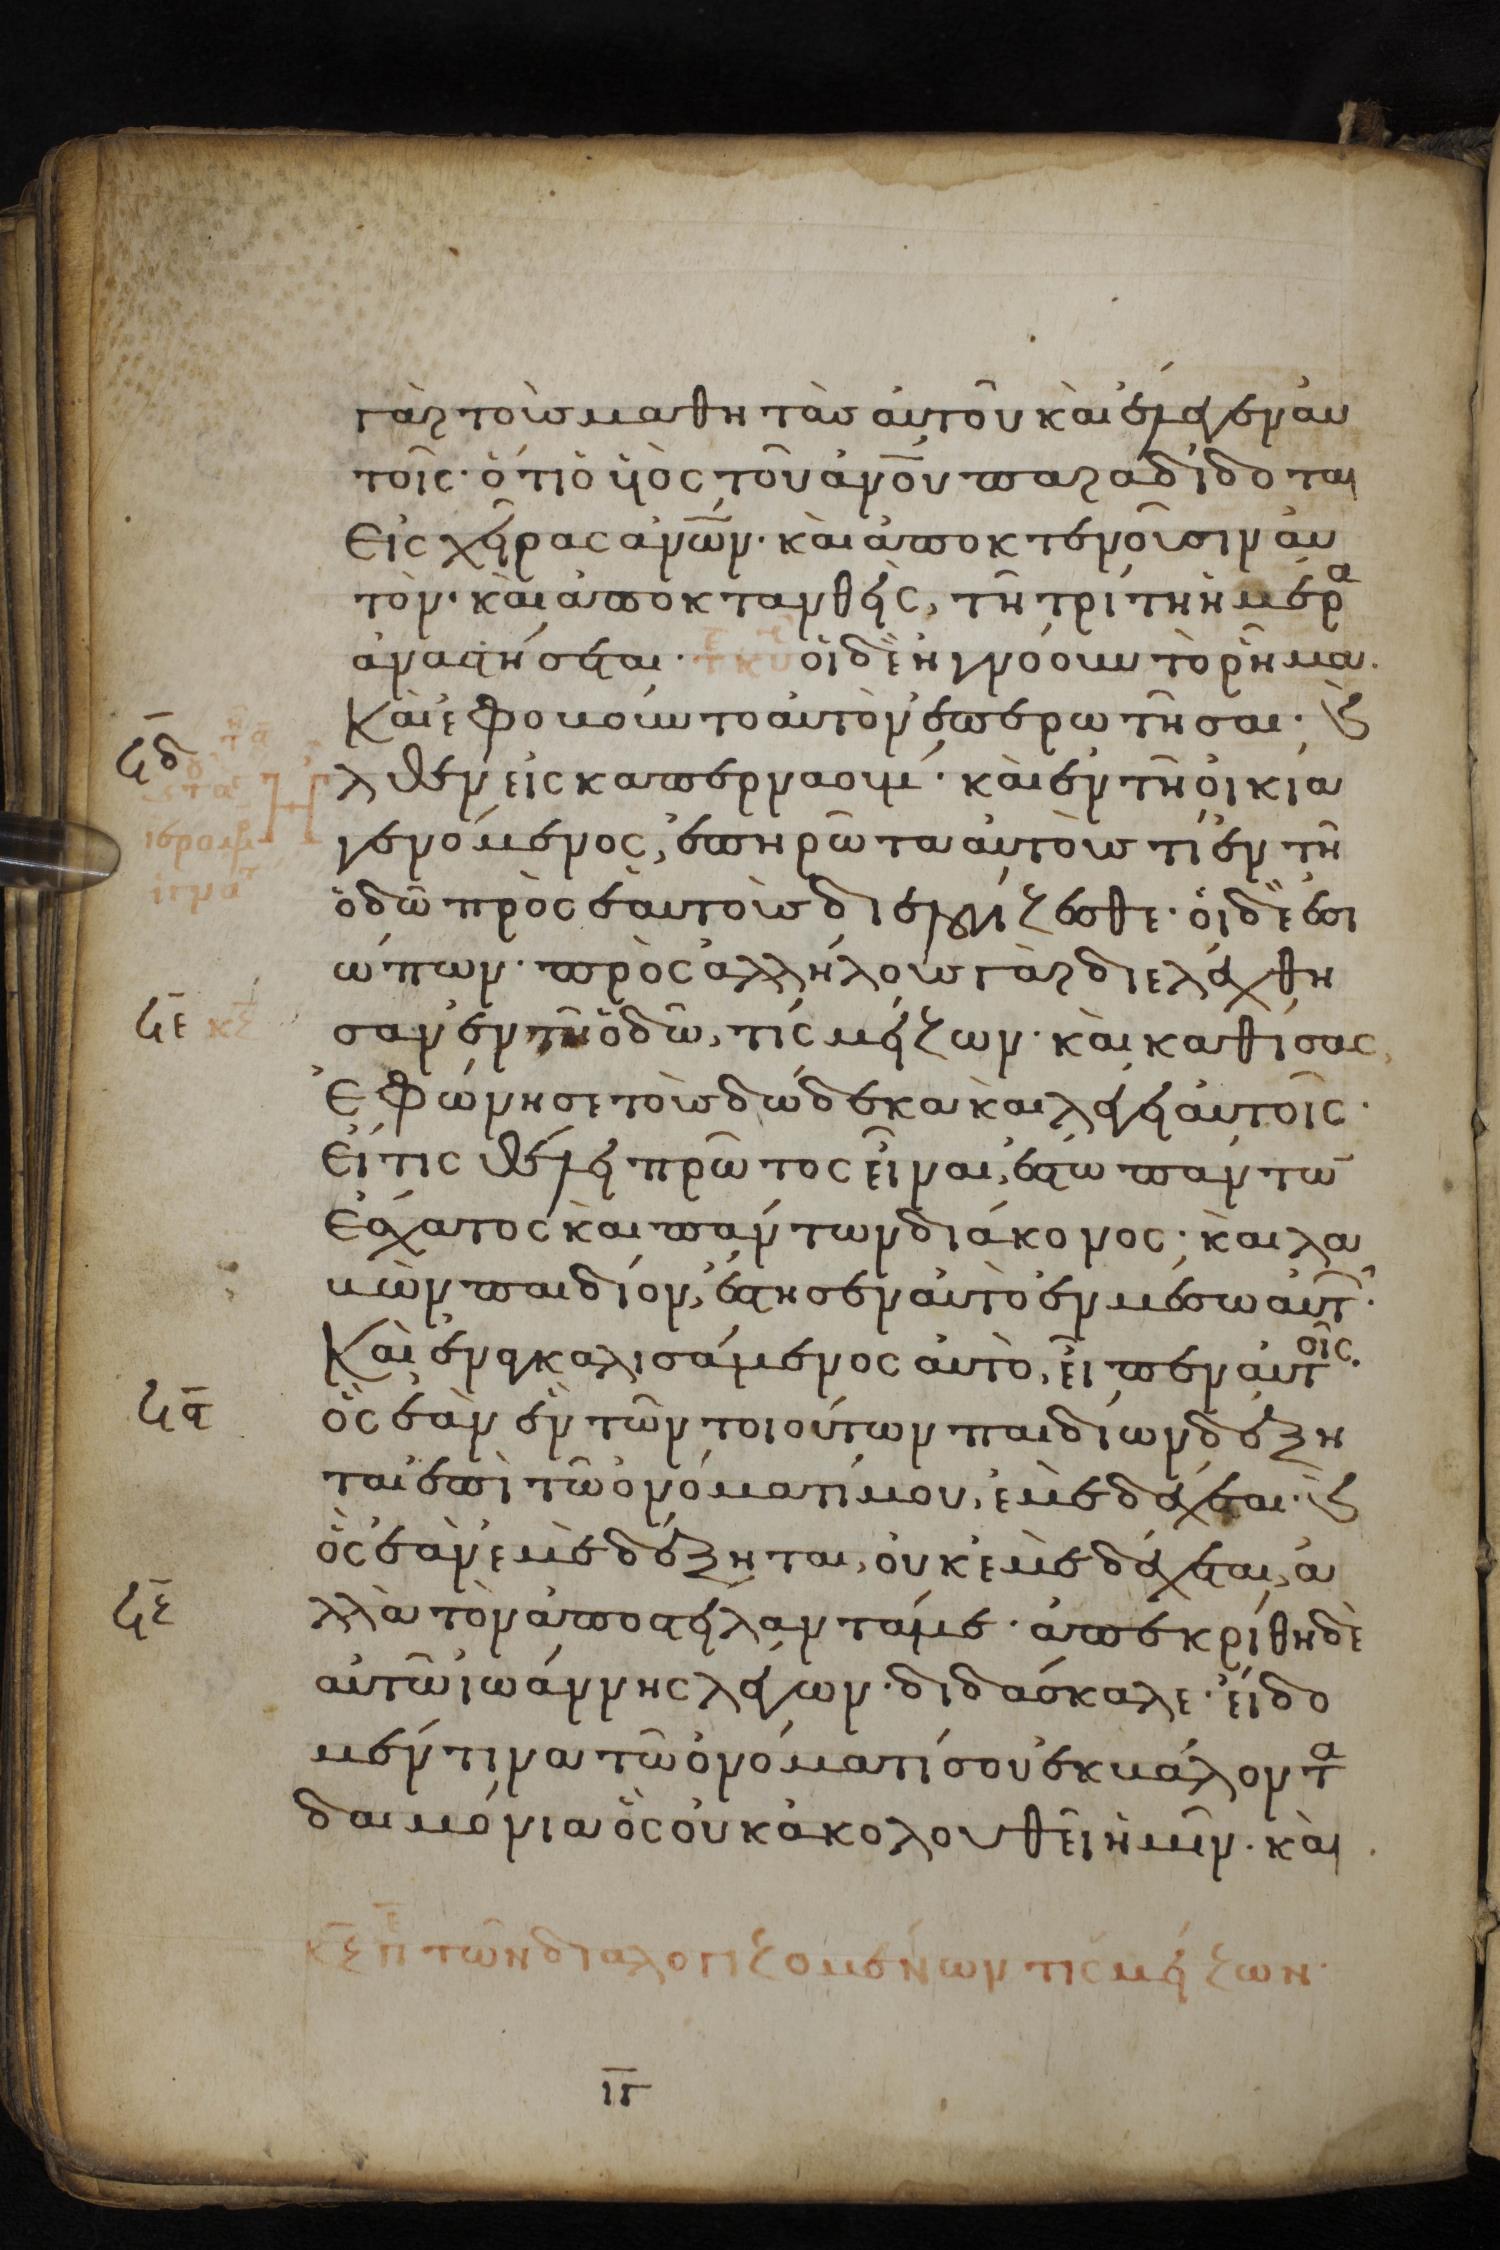 γὰρ τοὺς μαθητὰς αὐτοῦ καὶ ἔλεγεν αὐ
τοῖς· ὅτι ὁ ὑιὸς τοῦ ἀν͞ου παραδίδοται
εἰς χεῖρας ἀν͞ων· καὶ ἀποκτενοῦσιν αὐ
τὸν· καὶ ἀποκτανθεὶς, τῆ τρίτη ἡμέρα
ἀναστήσεται· οἱ δὲ ἠγνόουν τὸ ῥῆμα.
Καὶ ἐφοβοῦντο αὐτὸν ἐπερωτῆσαι· καὶ
ϟδ ἦλθεν εἰς καπερναούμ· καὶ ἐν τῆ οἰκία
γενόμενος, ἐπηρῶτα αὐτοὺς τί ἐν τῆ
ὁδῶ πρὸς ἑαυτοὺς διελογίζεσθε· οἱ δὲ ἐσι
ώπων· πρὸς ἀλλήλους γὰρ διελέχθη
ϟε κϛ σαν ἐν τῆ ὁδῶ, τίς μείζων· καὶ καθίσας,
ἐφώνησε τοὺς δώδεκα καὶ λέγει αὐτοῖς·
εἴ τις θέλει πρῶτος εἶναι, ἔστω πάντω̅
ἔσχατος καὶ πάντων διάκονος· καὶ λα
βὼν παιδίον, ἔστησεν αὐτὸ ἐν μέσω αὐτ·
Καὶ ἐναγκαλισάμενος αὐτὸ, εἶπεν αὐτοῖς·
ϟϛ ὃς ἐὰν ἓν τῶν τοιούτων παιδίων δέξη
ται ἐπὶ τῶ ὀνόματί μου, ἐμὲ δέχεται· καὶ
ὃς ἐὰν ἐμὲ δέξηται, οὐκ ἐμὲ δέχεται, ἀ
ϟζ λλὰ τὸν ἀποστείλαντά με· ἀπεκρίθη δὲ
αὐτῶ ἰωάννης λέγων· διδάσκαλε· εἴδο
μέν τινα τῶ ὀνόματί σου ἐκβάλοντα
δαιμόνια ὃς οὐκ ἀκολουθεῖ ἡμῖν· καὶ
κϛ πε τῶν διαλογιζομένων τίς μείζων·
ιγ